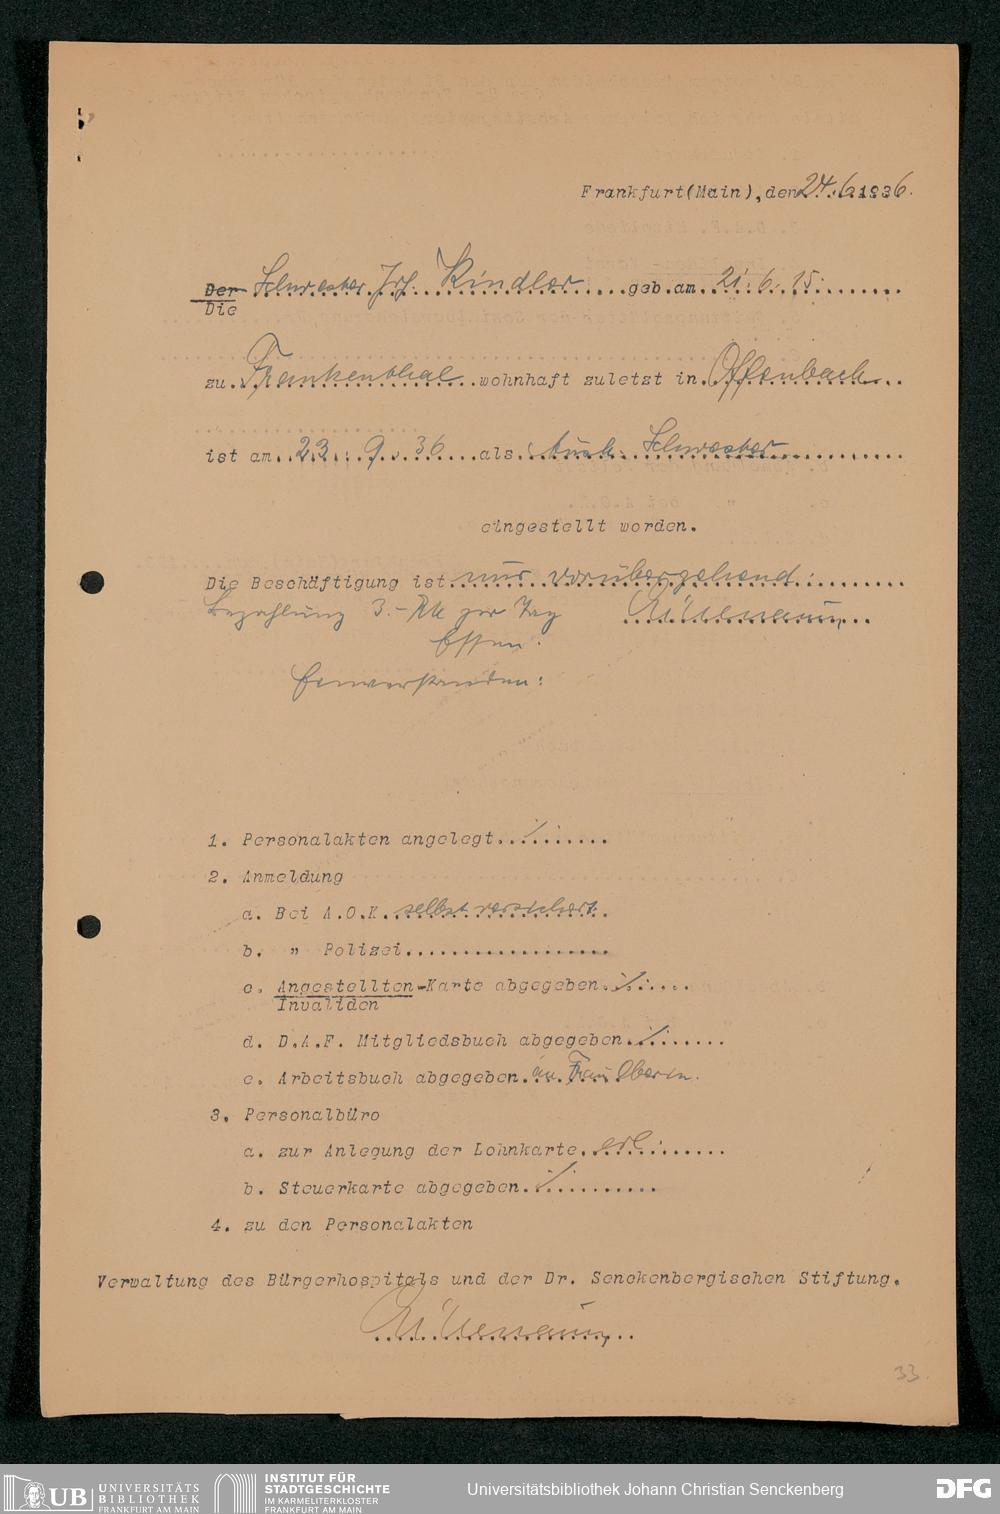 Frankfurt(Main),den 24.6.1936.
Der Schwester Irf. Kindler geb.am 21.6.15.
Die
zu Frankenthal wohnhaft zuletzt in Offenbach
ist am 23. 9. 36 als Aush. Schwester
eingestellt worden.
Die Beschäftigung ist nur vorübergehend.
Bezahlung 3.- RM per Tag
Essen.
Einverstanden:
1. Personalakten angelegt ./.
2. Anmeldung
a. Bei A.O.K. selbst versichert.
b. " Polizei
c. Angestellten-Karte abgegeben ./.
Invaliden
d. D.A.F. Mitgliedsbuch abgegeben ./.
e. Arbeitsbuch abgegeben an Frau Oberin.
3. Personalbüro
a. zur Anlegung der Lohnkarte erl.
b. Steuerkarte abgegeben ./.
4. zu den Personalakten
Verwaltung des Bürgerhospitals und der Dr. Senckenbergischen Stiftung.
33.
UB UNIVERSITÄTS
BIBLIOTHEK
FRANKFURT AM MAIN
INSTITUT FÜR
STADTGESCHICHTE
IM KARMELITERKLOSTER
FRANKFURT AM MAIN
Universitätsbibliothek Johann Christian Senckenberg
DFG